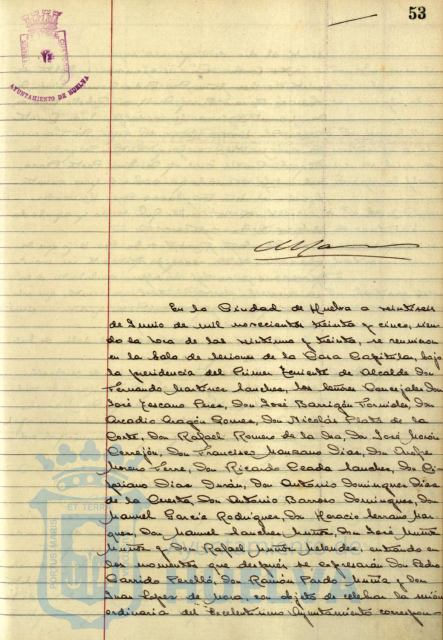 53
AYUNTAMIENTO DE HUELVA
En la Ciudad de Huelva a veintiseis
de Junio de mil novecientos treinta y cinco, sien-
do la hora de las veintiuna y treinta, se reunieron
en la Sala de sesiones de la Casa Capitular, bajo
la presidencia del Primer Teniente de Alcalde Don
Fernando Martinez Sanchez, los Señores Concejales Don
José Toscano Perez, Don José Barrigón Fornieles, Don
Arcadio Aragón Gomez, Don Nicolás Plata de la
Corte, Don Rafael Romero de la Don José Morón
Cerrejón, Don Francisco Manzano Diaz, Don Onofre
Moreno Don Ricardo Sanchez, Don Ci-
priano Diaz Durán, Don Antonio Dominguez Diaz
de la Cuesta, Don Antonio Barroso Dominguez, Don
Manuel Garcia Rodriguez, Don Horacio Serrano Mar-
quez, Don Manuel Sanchez Muñoz, Don José Muñoz
Muñoz y Don Rafael Muñoz Melendez, entrando en
los momentos que después se expresarán Don Pedro
Garrido Perelló, Don Ramón Pardo Muñiz y Don
Juan Lopez de con objeto de celebrar la sesión
ordinaria del Excelentisimo Ayuntamiento correspon-
PORTUS MARIS
ET TERR